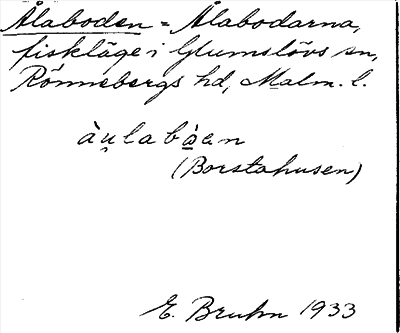 Ålaboden = Ålabodarna,
fiskläge i Glumslövs sn,
Rönnebergs hd, Malm. l.
àu̯labå̀en
(Borstahusen)
E. Bruhn 1933